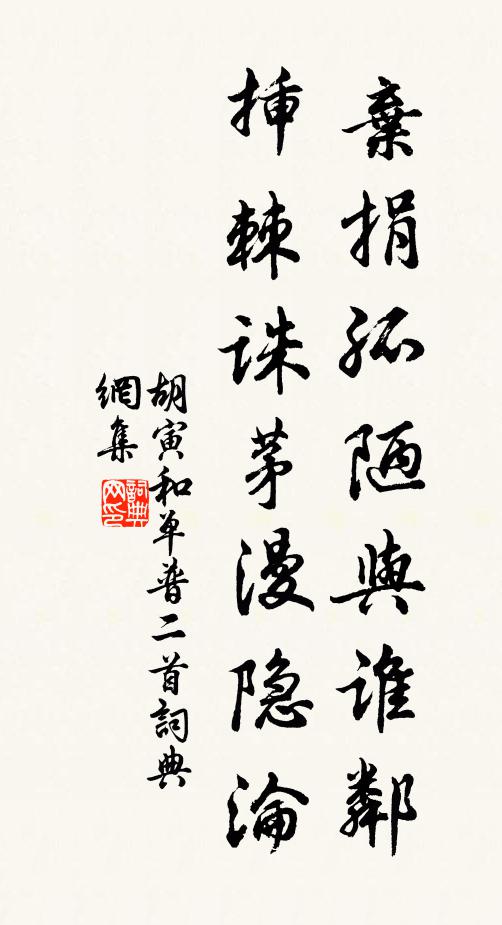 棄捐孤陋與誰鄰
插棘誅茅漫隐淪
胡寅和单普二首詞典
網集
詞典網印